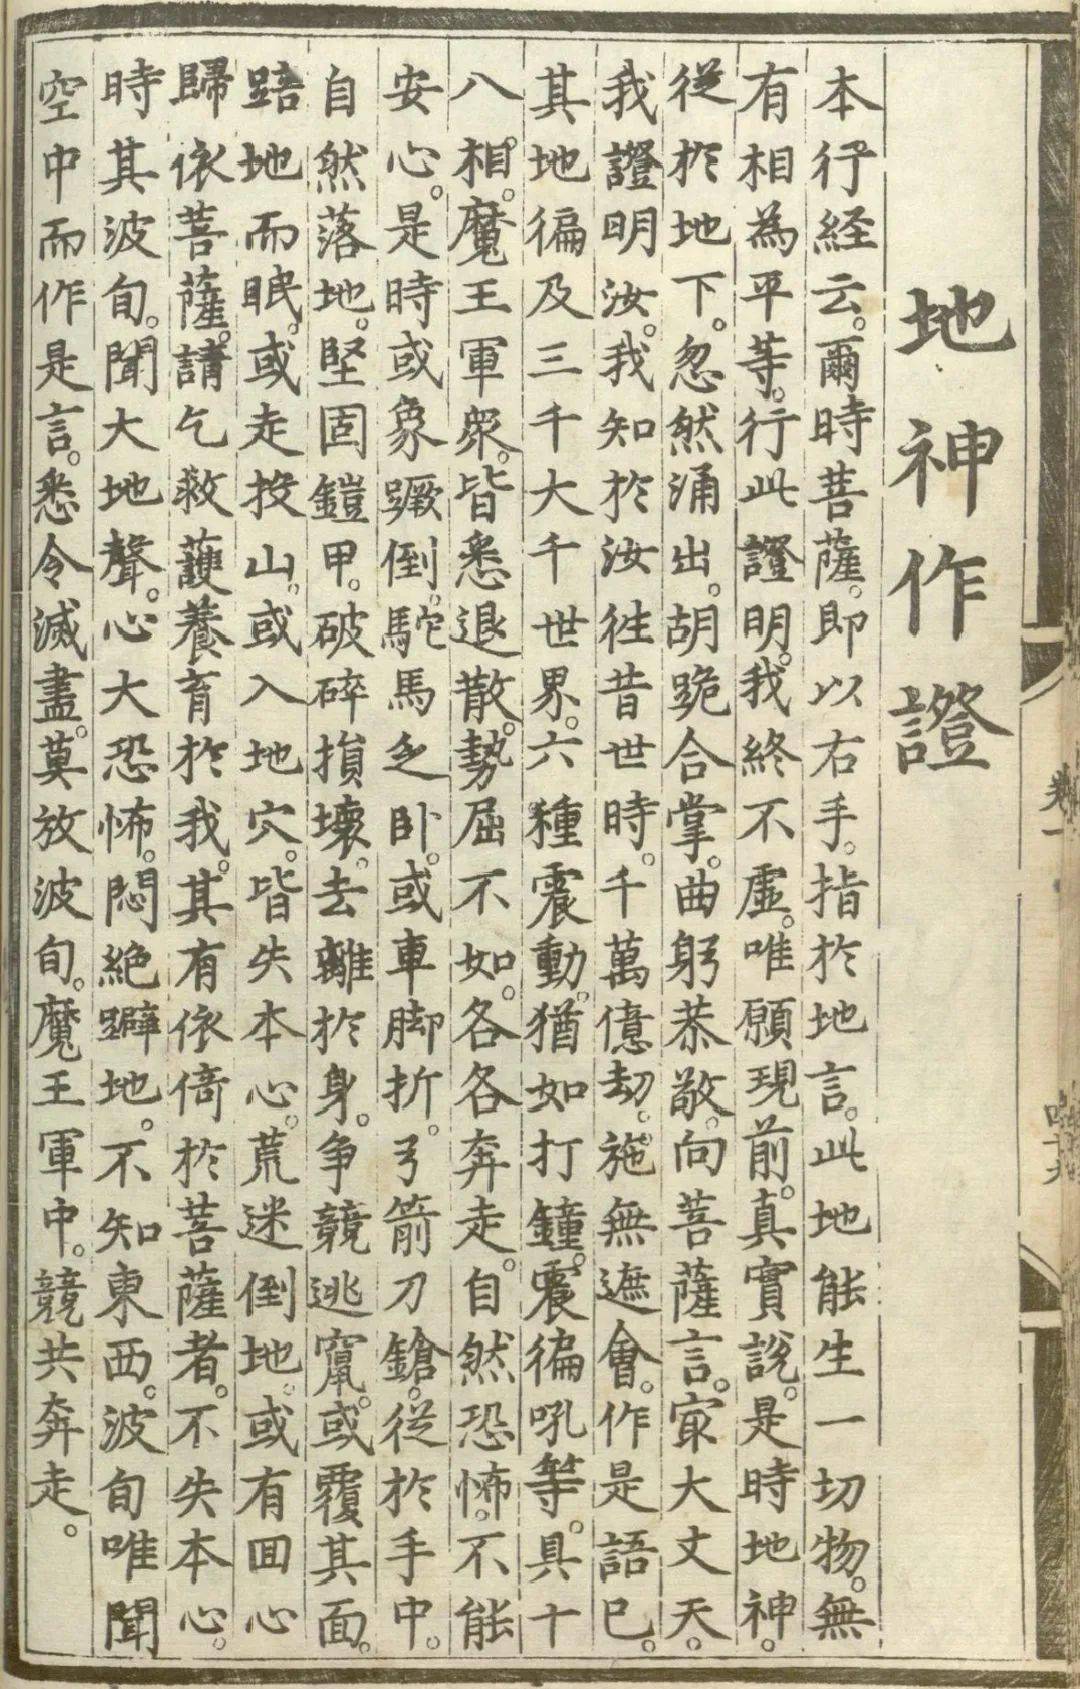 地神作證
本行経云。爾時菩薩。即以右手。指於地言。此地能生一切物。無
有相為平等。行此證明。我終不虛。唯願現前。真實說。是時地神。
從於地下。忽然涌出。胡跪合掌。曲躬恭敬。向菩薩言。㝡大丈夫。
我證明汝。我知於汝徃昔世時。千萬億劫。施無遮會。作是語已。
其地徧及三千大千世界。六種震動。猶如打鐘。震徧吼等。具十
八相。魔王軍眾。皆悉退散。勢屈不如。各各奔走。自然恐怖。不能
安心。是時或象蹶倒。駝馬乏卧。或車脚折。弓箭刀鎗。從於手中。
自然落地。堅固鎧甲。破碎損壞。去離於身。争競逃竄。或覆其面。
踣地而眠。或走投山。或入地穴。皆失本心。荒迷倒地。或有囬心
歸依菩薩。請乞救護養育於我。其有依倚於菩薩者。不失本心。
時其波旬。聞大地聲。心大恐怖。悶絕躃地。不知東西。波旬唯聞
空中而作是言。悉令滅盡。莫放波旬。魔王軍中。競共奔走。
卷一